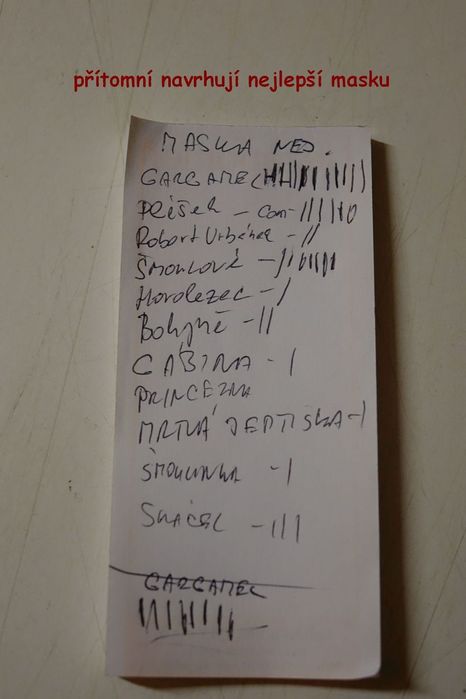 přítomní navrhují nejlepší masku
MASKA NEJ.
GARGAMEL
Robert Urbánek - ||
Šmoulové -
Horolezec - |
Bohyně - ||
GÁBINA - |
PRINCEZNA
MRTVÁ JEPTIŠKA - |
ŠMOULINKA - |
SKÁCEL - |||
GARGAMEL